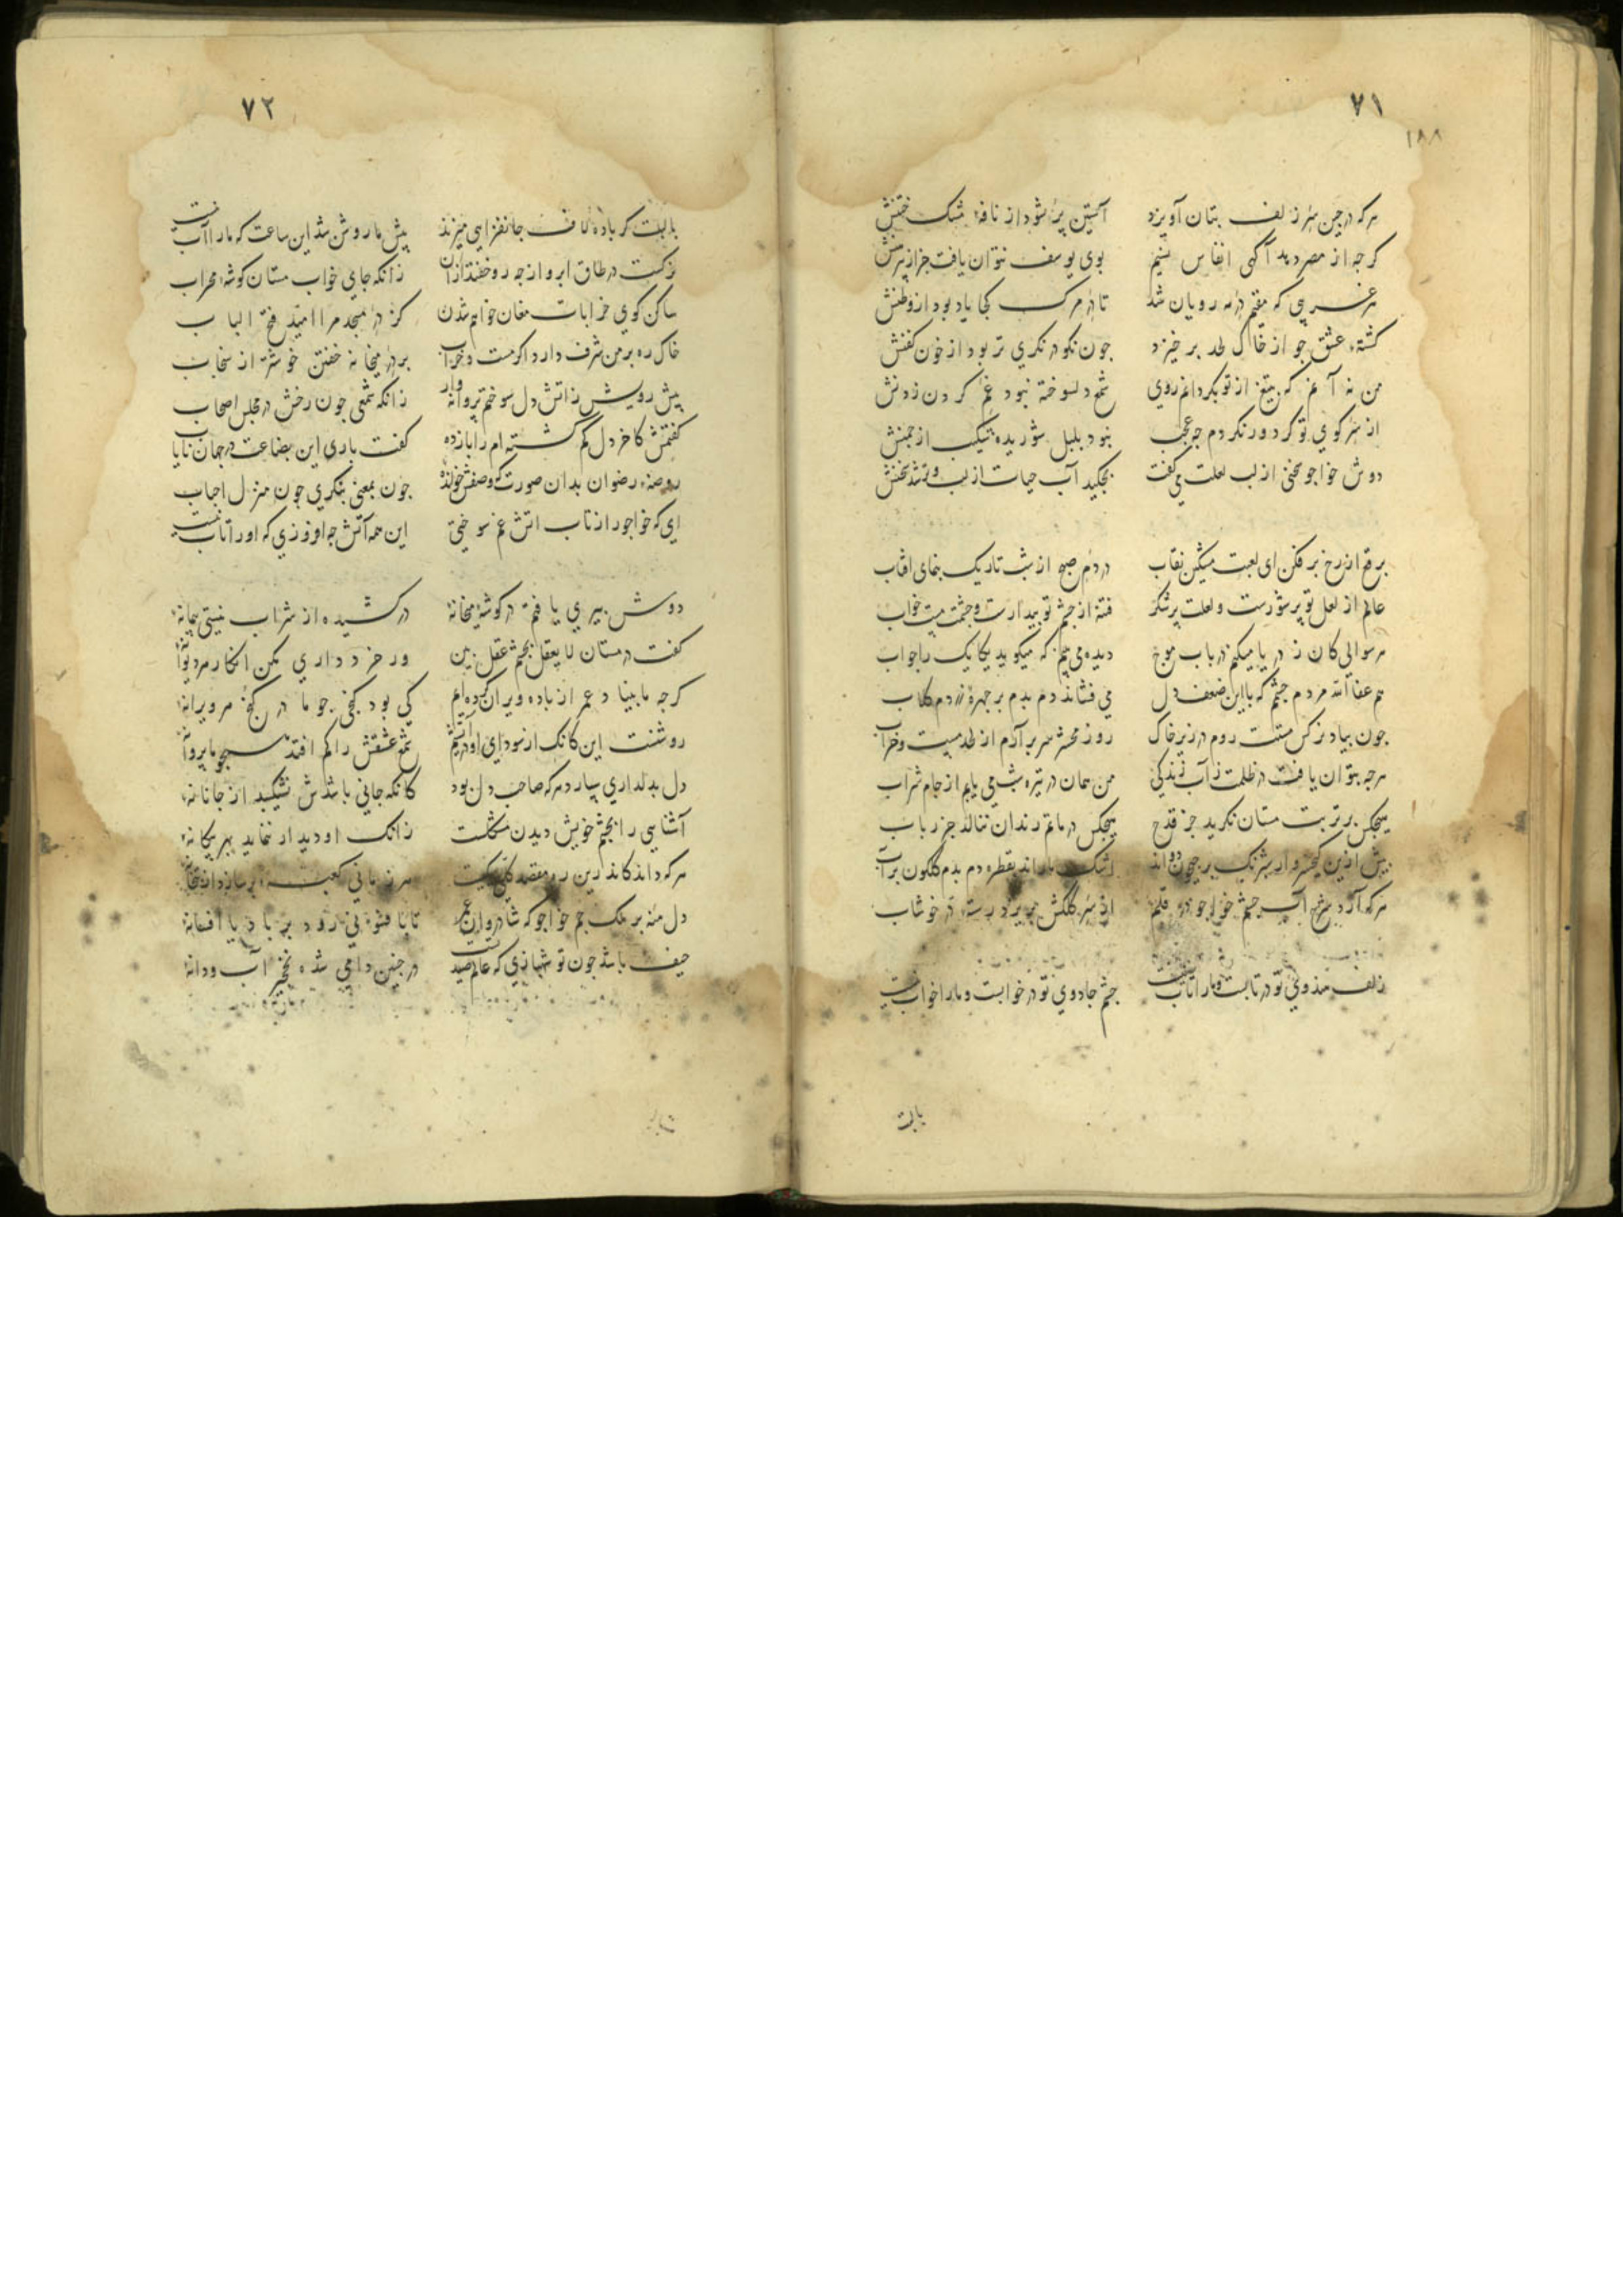 ٧١
١٨٨
هرکه در چین سر زلف بتان آویزد آستین پر شود از نافهٔ مشک ختنش
کرجه از مصر دهد آکهی انفاس نسیم بوی یوسف نتوان یافت جز از پیرهنش
هر غریبی که مقیم در مه رویان شد تا در مرک کجا یاد بود از وطنش
کشتهٔ عشق جو از خاک لحد برخیزد جون نکو در نکری تر بود از خون کفنش
من نه آنم که بتیغ از تو بکردانم روی شمع دلسوخته نبود غم کردن زدنش
از سر کوی تو کر دور نکردم جه عجب نبود بلبل شوریده شکیب از جمنش
دوش خواجو سخنی از لب لعلت می کفت بجکید آب حیات از لب و تر شد سخنش
برقع از رخ برفکن ای لعبت مشکین نقاب در دم صبح از شب تاریک بنمای افتاب
عالم از لعل تو پر شورست و لعلت پر شکر فتنه از جشم تو بیدارست و جشمت مست خواب
هر سوالی کان ز دریا میکنم در باب موج دیده می بینم که میکوید یکایک را جواب
هم عفا الله مردم جشمم که با این ضعف دل می فشاند دم بدم بر جهرهٔ زردم کلاب
جون بیاد نرکس مستت روم در زیر خاک روز محشر سر برآرم از لحد مست و خراب
هرجه بتوان یافت در ظلمت ز آب زندکی من همان در تیره شب می یابم از جام شراب
هیچکس بر تربت مستان نکرید جز قدح هیچکس در ماتم رندان ننالد جز رباب
پیش ازین کیخسرو ار شبرنک بر جیحون دواند اشک ما راند بقطره دم بدم کلکون بر آب
هرکه آرد شرح آب جشم خواجو در قلم از سر کلکش بریزد رستهٔ در خوشاب
زلف هندوی تو در تابست و ما را تاب نیست جشم جادوی تو در خوابست و ما را خواب نیست
بالبت
٧٢
با لبت کر باده لاف جانفزایی میزند پیش ما روشن شد این ساعت که ما را آب نیست
نرکست در طاق ابرو از جه رو خفتد ازآن زانکه جای خواب مستان کوشهٔ محراب
ساکن کوی خرابات مغان خواهم شدن کز در مسجد مرا امید فتح الباب
خاک ره بر من شرف دارد اکر مست و خراب بر در میخانه خفتن خوشتر از سنجاب
پیش رویش زاتش دل سوختم پروانه وار زانکه شمعی جون رخش در مجلس اصحاب
کفتمش کاخر دل کم کشته ام را باز ده کفت باری این بضاعت در جهان نایاب
روضهٔ رضوان بدان صورت که وصفش خواندهٔ جون بمعنی بنکری جون منزل احباب
ای که خواجو را ز تاب اتش غم سوختی این همه آتش جه افروزی که او را تاب نیست
دوش پیری یافتم در کوشهٔ میخانهٔ در کشیده از شراب نیستی پیمانهٔ
کفت در مستان لایعقل بجشم عقل بین ور خرد داری مکن انکار هر دیوانهٔ
کرجه ما بنیاد عمر از باده ویران کرده ایم کی بود کنجی جو ما در کنج هر ویرانهٔ
روشنست این کانک از سودای او در آتشیم شمع عشقش را کم افتد همجو ما پروانهٔ
دل بدلداری سپارد هرکه صاحب دل بود کانکه جانی باشدش نشکیبد از جانانهٔ
آشنایی را بجشم خویش دیدن مشکلست زانک او دیدار ننماید بهر بیکانهٔ
هرکه داند کاندرین ره مقصد کلی یکیست هر زمانی کعبهٔ بر سازد از بتخانهٔ
دل منه بر ملک جم خواجو که شادروان عمر تا بافسونی رود بر باد یا افسانهٔ
حیف باشد جون تو شهبازی که عالم صید تست در جنین دامی شده نخجیر آب و دانهٔ